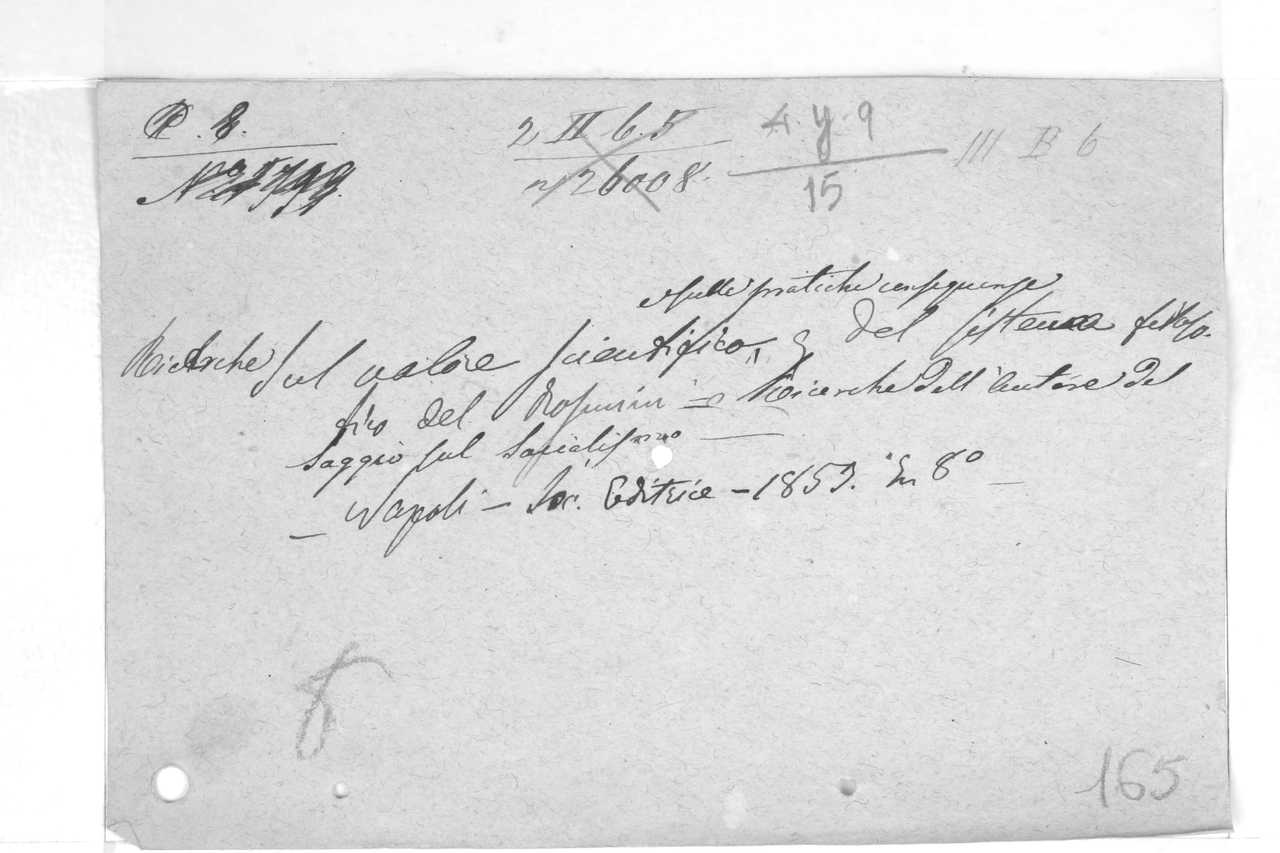 P. 8.
2 II 6.5
A. y. 9
III B 6
n 26008.
15
e sulle pratiche conseguenze
Ricerche sul valore scientifico, e del sistema filoso-
fico del Rosmini — Ricerche dell'autore del
Saggio sul Socialismo —
— Napoli — Soc. Editrice — 1853. In 8º —
165